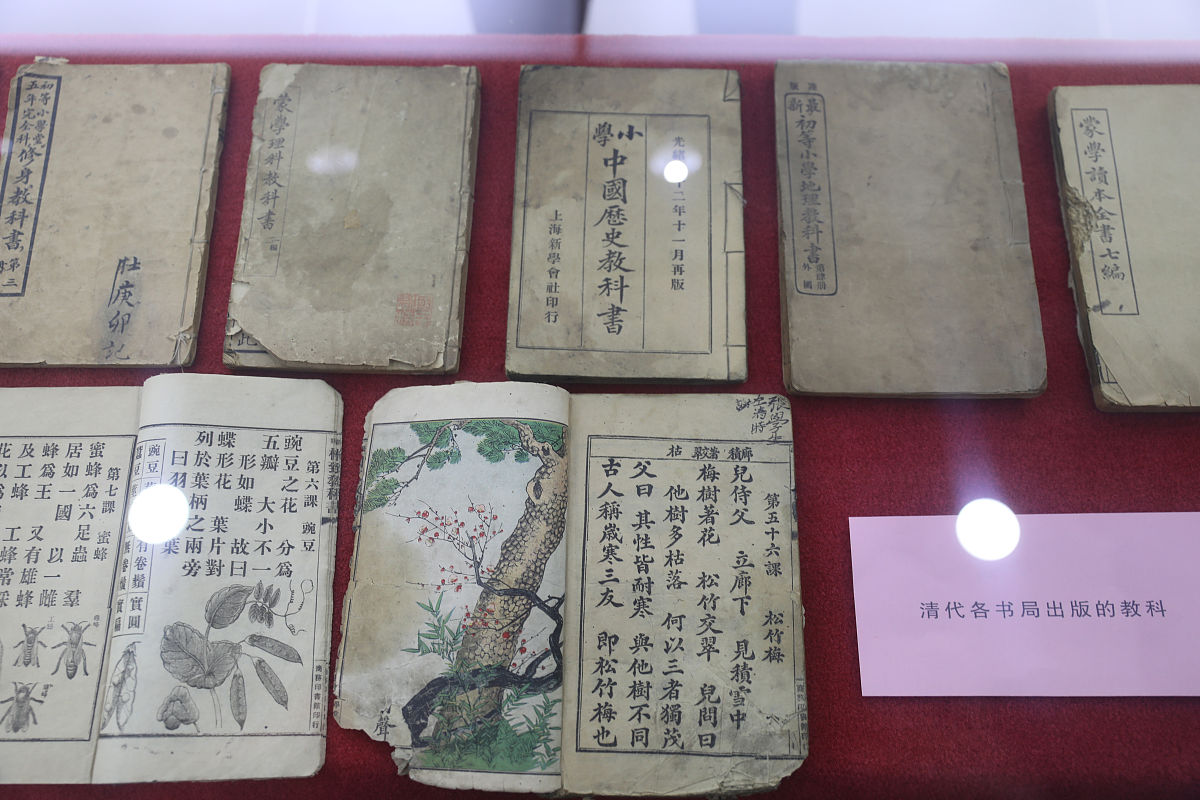 初等小學堂
五年完全科
修身教科書
第三
壯庚卯記
蒙學理科教科書
二編
光緒
十二年十一月再版
小學
中國歷史教科書
上海新學會社印行
最新
初等小學地理教科書
第肆册
外國
蒙學讀本全書七編
第七課 蜜蜂
蜜蜂爲六足蟲
居如一國 以一羣
蜂爲王 又有雄蜂
及工蜂
第六課 豌豆
豌豆之花 分爲
五瓣 大小不一
形如蝶 故曰
蝶形花 葉片對
列於葉柄之兩旁
曰羽
葉
豌豆
有卷鬚
實圓
商務印書館印行
聲
廊 積 著 翠 枯
第五十六課 松竹梅
兒侍父 立廊下 見積雪中
梅樹著花 松竹交翠 兒問曰
他樹多枯落 何以三者獨茂
父曰 其性皆耐寒 與他樹不同
古人稱歲寒三友 即松竹梅也
清代各书局出版的教科